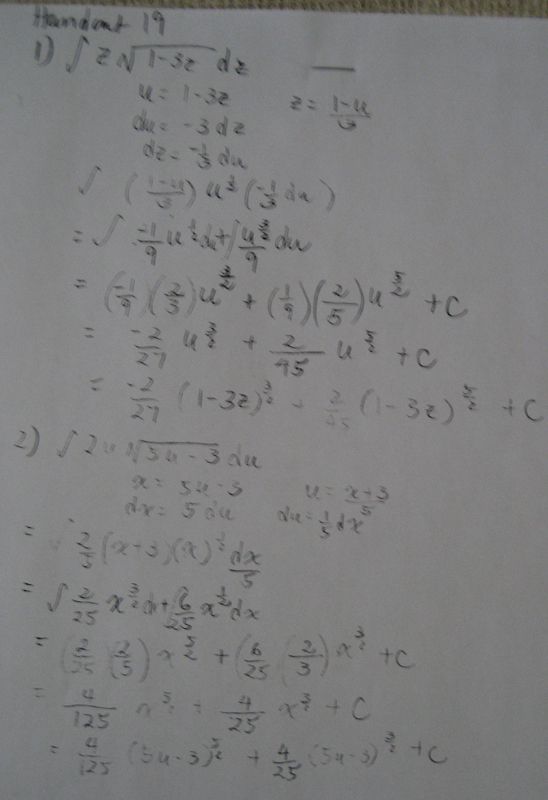 Handout 19
1) ∫ z √(1-3z) dz
u = 1-3z z = (1-u)/3
du = -3 dz
dz = -1/3 du
∫ ((1-u)/3) u^(1/2) (-1/3 du)
= ∫ -1/9 u^(1/2) du + ∫ u^(3/2)/9 du
= (-1/9)(2/3) u^(3/2) + (1/9)(2/5) u^(5/2) + C
= -2/27 u^(3/2) + 2/45 u^(5/2) + C
= -2/27 (1-3z)^(3/2) + 2/45 (1-3z)^(5/2) + C
2) ∫ 2u √(5u-3) du
x = 5u-3 u = (x+3)/5
dx = 5 du du = 1/5 dx
= 2/5 (x+3)(x)^(1/2) dx/5
= ∫ 2/25 x^(3/2) dx + ∫ 6/25 x^(1/2) dx
= (2/25)(2/5) x^(5/2) + (6/25)(2/3) x^(3/2) + C
= 4/125 x^(5/2) + 4/25 x^(3/2) + C
= 4/125 (5u-3)^(5/2) + 4/25 (5u-3)^(3/2) + C